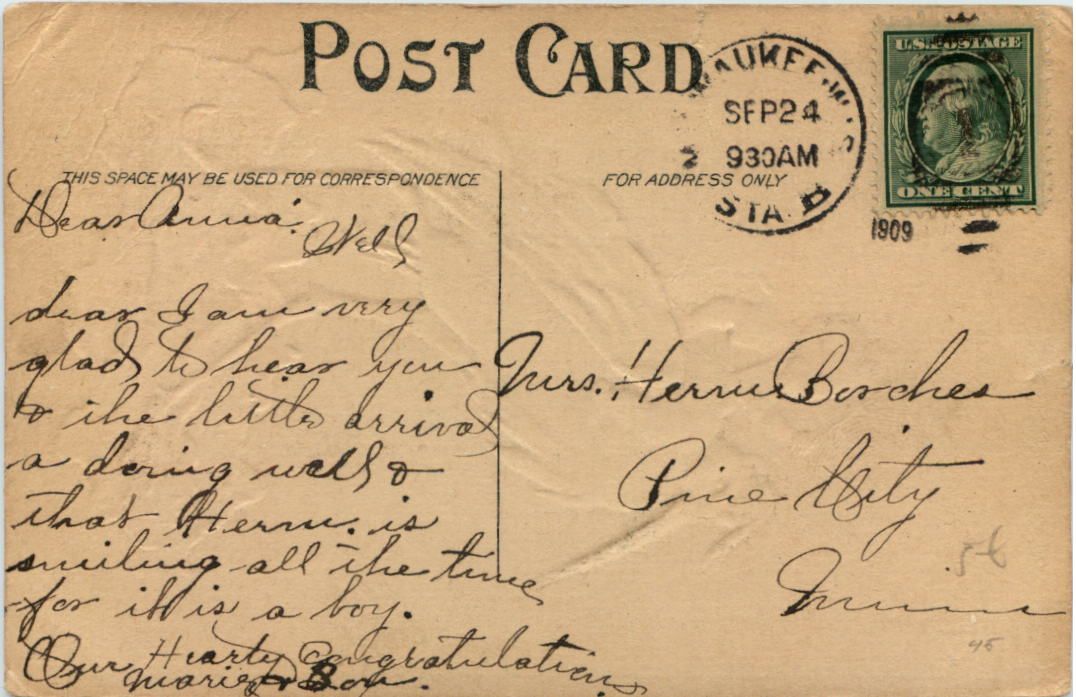 POST CARD
MILWAUKEE, WIS
SEP 24
930AM
STA. B
1909
U.S. POSTAGE
ONE CENT
THIS SPACE MAY BE USED FOR CORRESPONDENCE
FOR ADDRESS ONLY
Dear Anna.
Well
dear I am very
glad to hear you
& the little arrival
a doing well &
that Herm. is
smiling all the time
for it is a boy.
Our Hearty Congratulations
Marie & Boy.
Mrs. Herm Borches
Pine City
Minn
56
45